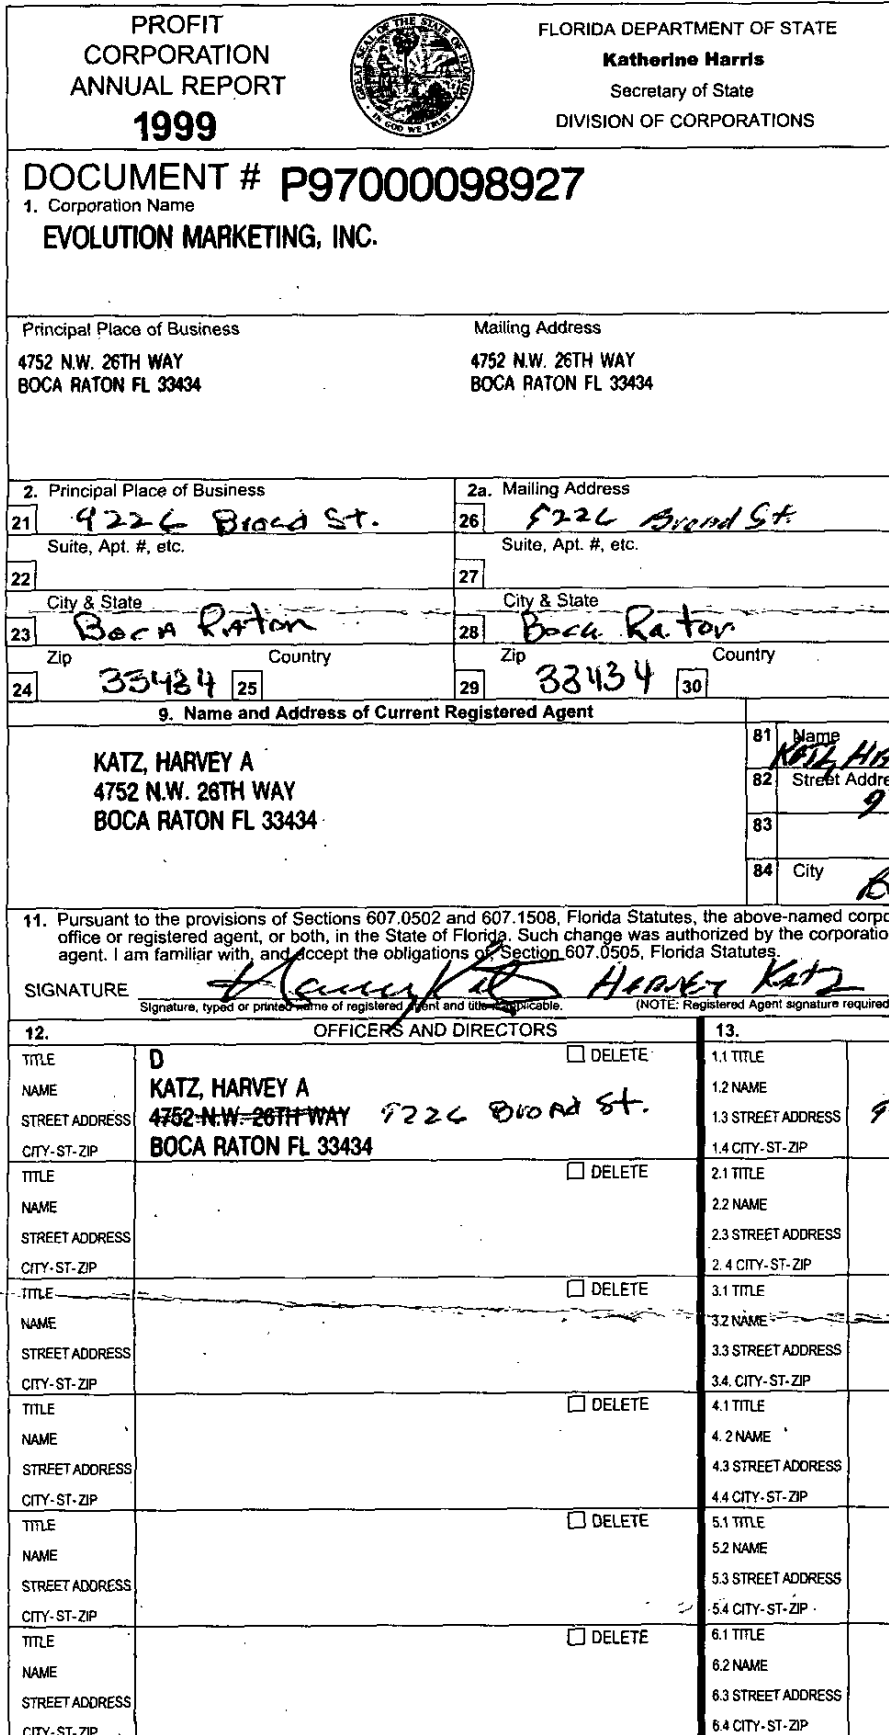 PROFIT
CORPORATION
ANNUAL REPORT
1999
GREAT SEAL OF THE STATE OF FLORIDA
IN GOD WE TRUST
FLORIDA DEPARTMENT OF STATE
Katherine Harris
Secretary of State
DIVISION OF CORPORATIONS
DOCUMENT # P97000098927
1. Corporation Name
EVOLUTION MARKETING, INC.
Principal Place of Business
4752 N.W. 26TH WAY
BOCA RATON FL 33434
Mailing Address
4752 N.W. 26TH WAY
BOCA RATON FL 33434
2. Principal Place of Business
21 9226 Broad St.
Suite, Apt. #, etc.
22
City & State
23 Boca Raton
Zip Country
24 33434 25
2a. Mailing Address
26 9226 Broad St.
Suite, Apt. #, etc.
27
City & State
28 Boca Raton
Zip Country
29 33434 30
9. Name and Address of Current Registered Agent
KATZ, HARVEY A
4752 N.W. 26TH WAY
BOCA RATON FL 33434
81 Name
Katz, Ha
82 Street Addre
9
83
84 City
B
11. Pursuant to the provisions of Sections 607.0502 and 607.1508, Florida Statutes, the above-named corpo
office or registered agent, or both, in the State of Florida. Such change was authorized by the corporatio
agent. I am familiar with, and accept the obligations of, Section 607.0505, Florida Statutes.
SIGNATURE Harvey Katz Harvey Katz
Signature, typed or printed name of registered agent and title if applicable. (NOTE: Registered Agent signature required
12. OFFICERS AND DIRECTORS
TITLE D DELETE
NAME KATZ, HARVEY A
STREET ADDRESS 4752 N.W. 26TH WAY 9226 Broad St.
CITY-ST-ZIP BOCA RATON FL 33434
TITLE DELETE
NAME
STREET ADDRESS
CITY-ST-ZIP
TITLE DELETE
NAME
STREET ADDRESS
CITY-ST-ZIP
TITLE DELETE
NAME
STREET ADDRESS
CITY-ST-ZIP
TITLE DELETE
NAME
STREET ADDRESS
CITY-ST-ZIP
TITLE DELETE
NAME
STREET ADDRESS
CITY-ST-ZIP
13.
1.1 TITLE
1.2 NAME
1.3 STREET ADDRESS 9
1.4 CITY-ST-ZIP
2.1 TITLE
2.2 NAME
2.3 STREET ADDRESS
2. 4 CITY-ST-ZIP
3.1 TITLE
3.2 NAME
3.3 STREET ADDRESS
3.4. CITY-ST-ZIP
4.1 TITLE
4. 2 NAME
4.3 STREET ADDRESS
4.4 CITY-ST-ZIP
5.1 TITLE
5.2 NAME
5.3 STREET ADDRESS
5.4 CITY-ST-ZIP
6.1 TITLE
6.2 NAME
6.3 STREET ADDRESS
6.4 CITY-ST-ZIP